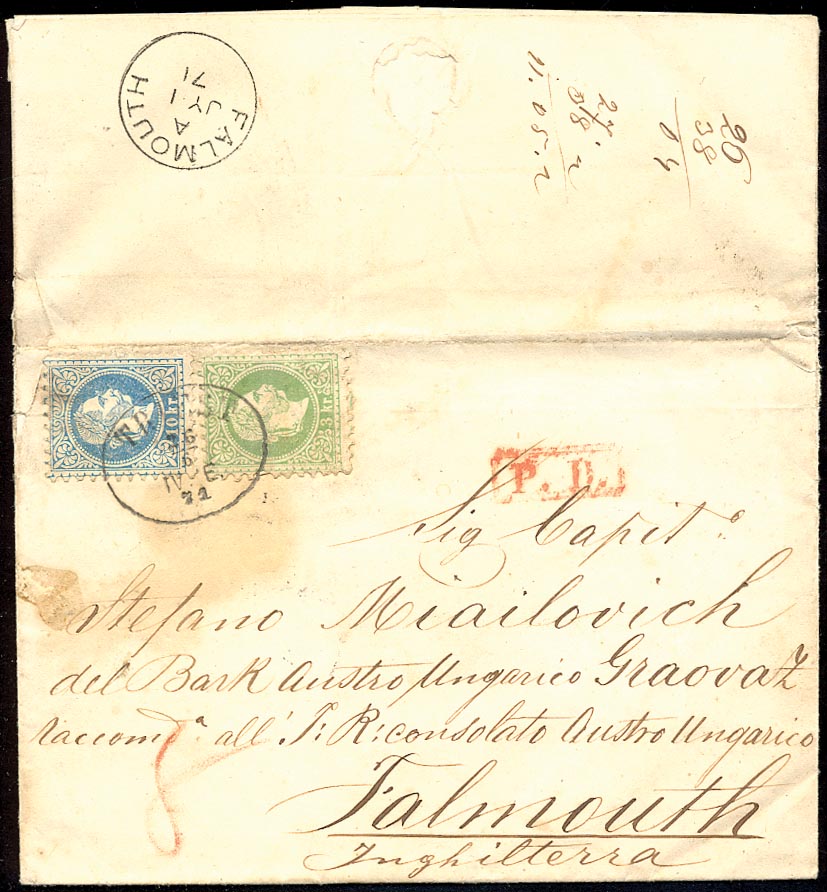 FALMOUTH
A
JY 1
71
26
38
64
27.
58.2
11.05.2
10 kr.
3 kr.
71
P. D.
Sig Capit.º
Stefano Miailovich
del Bark Austro Ungarico Graovaz
raccom.ª all' I: R: consolato Austro Ungarico
Falmouth
Inghilterra